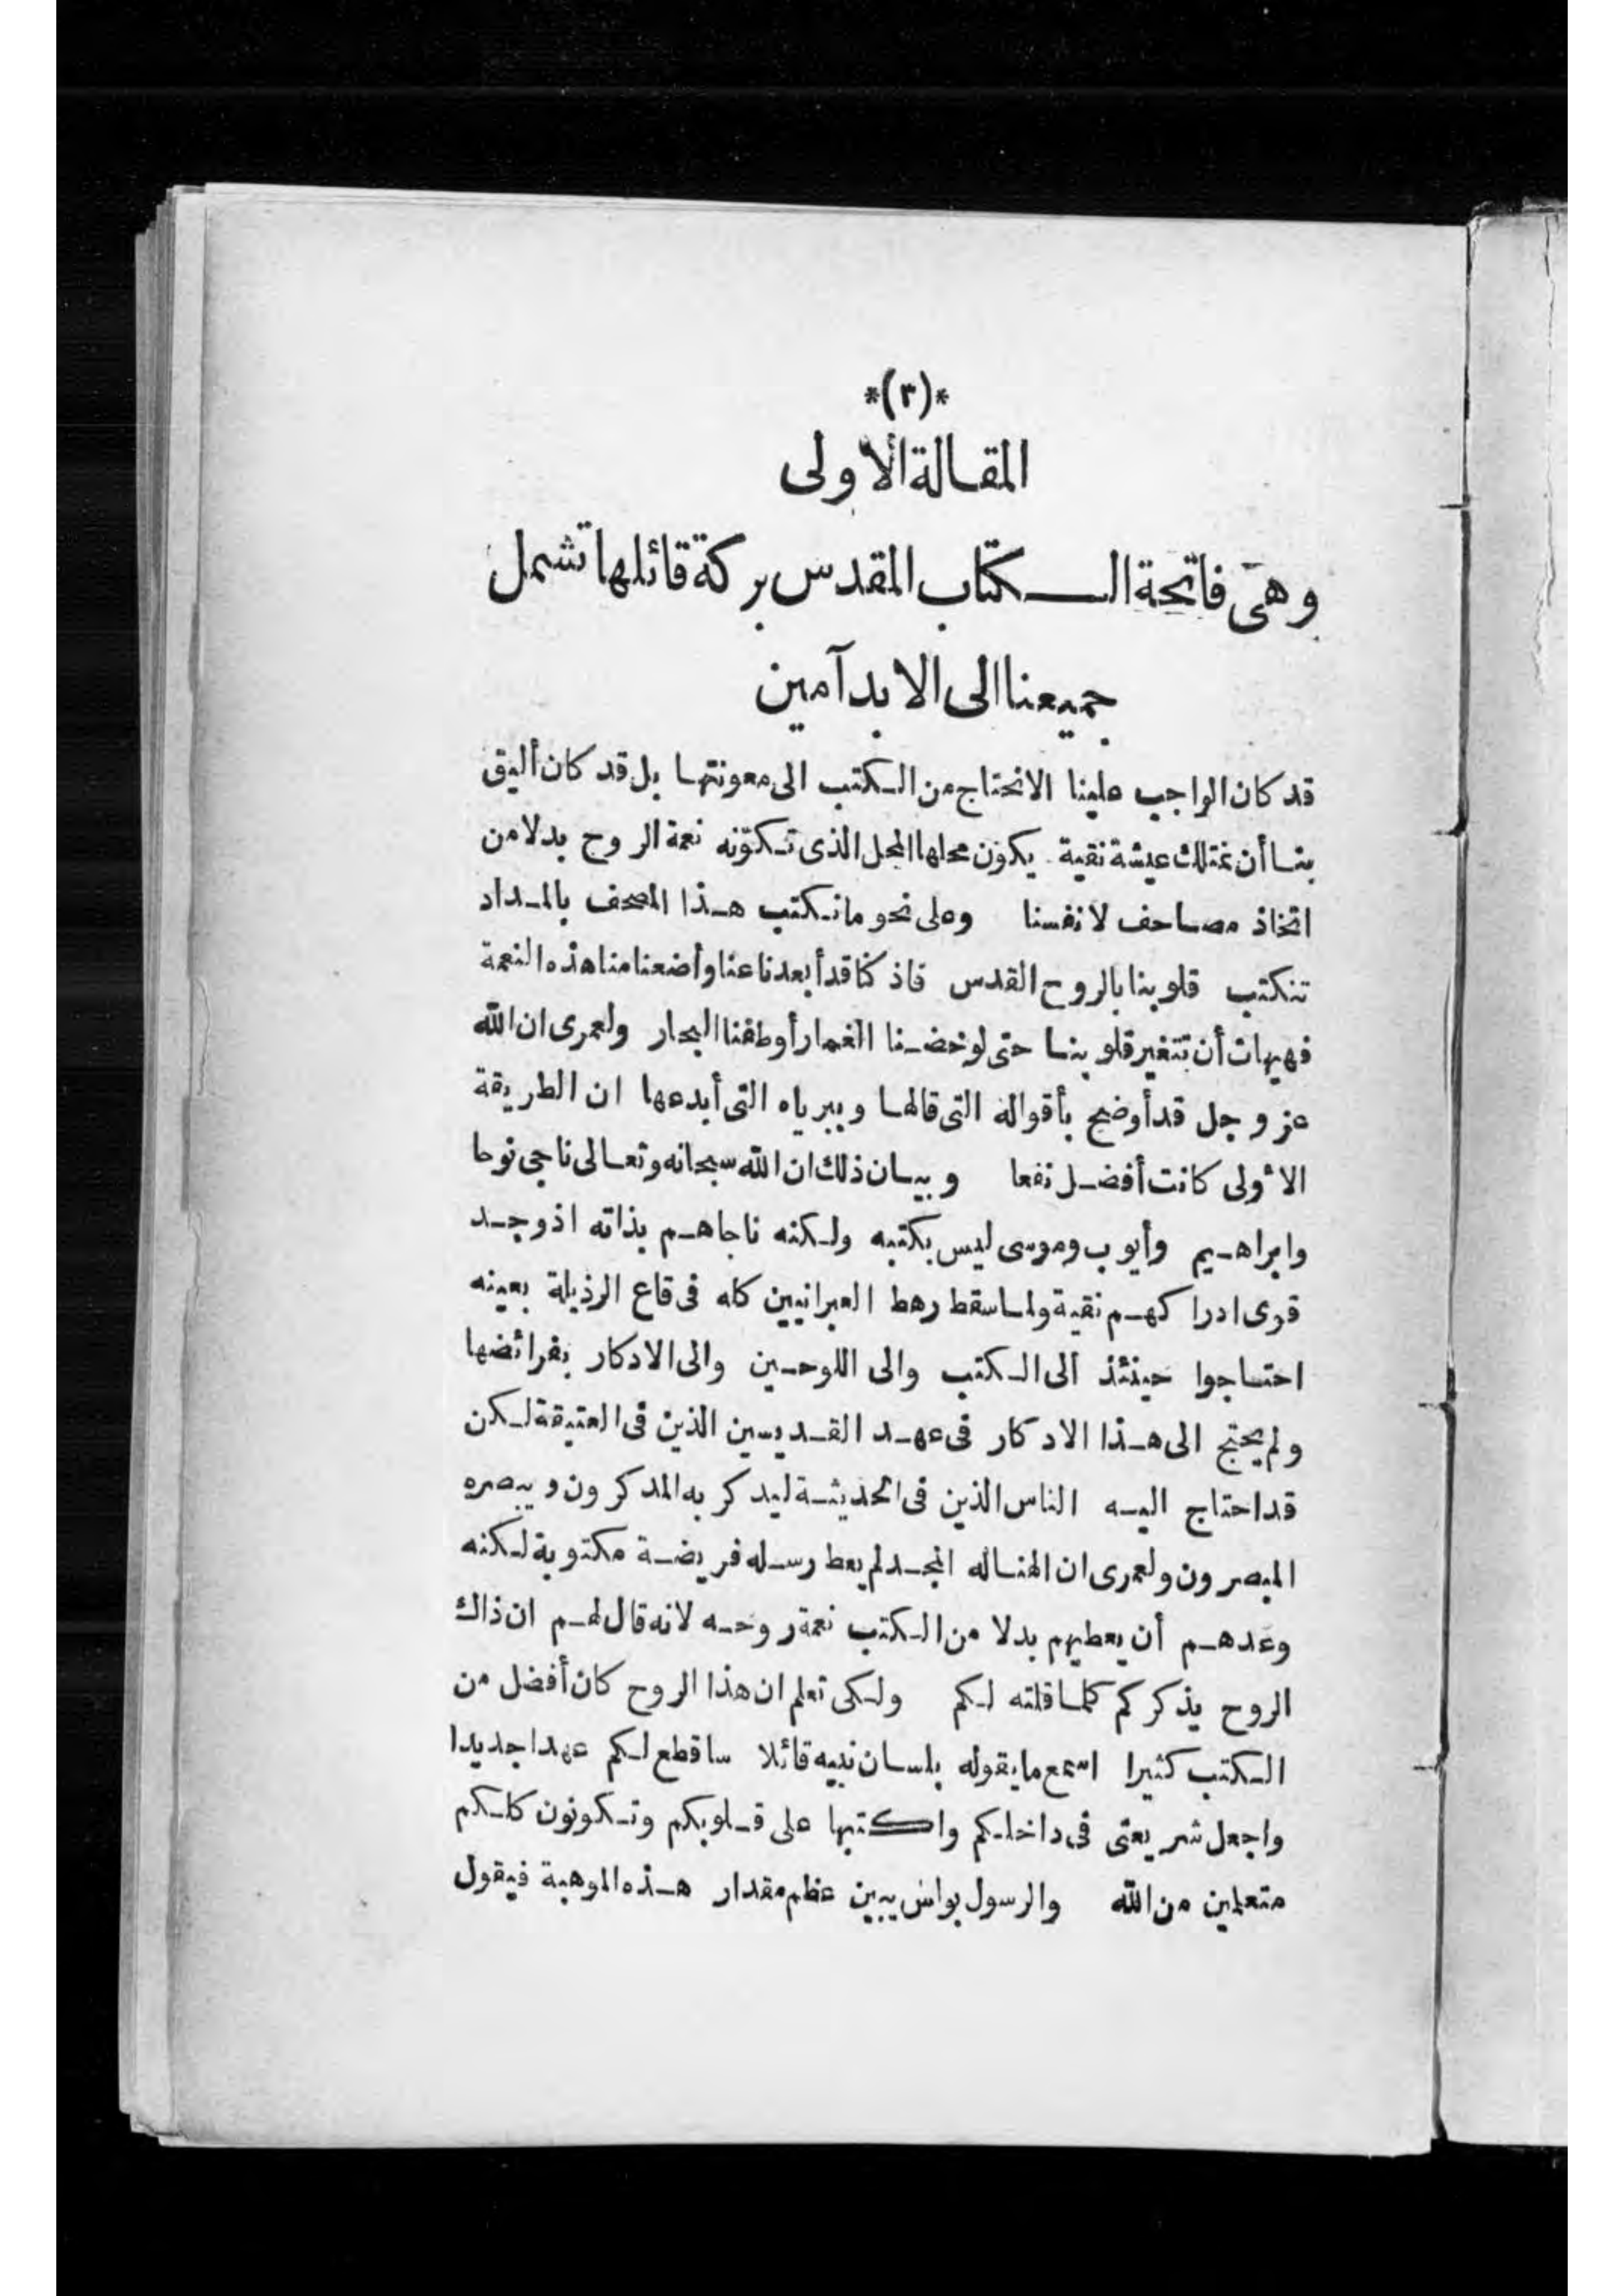 *(٣)*
المقالة الاولى
وهى فاتحة الكتاب المقدس بركة قائلها تشمل
جميعنا الى الابد آمين
قد كان الواجب علينا الانحتاج من الكتب الى معونتها بل قد كان أليق
بنا أن نمتلك عيشة نقية يكون محلها المحل الذى تكوّنه نعمة الروح بدلا من
اتخاذ مصاحف لانفسنا وعلى نحو ما نكتب هذا المصحف بالمداد
تنكتب قلوبنا بالروح القدس فاذ كنا قد أبعدنا عنا وأضعنا منا هذه النعمة
فهيهات أن تتغير قلوبنا حتى لو خضنا الغمار أو طفنا البحار ولعمرى ان الله
عز وجل قد أوضح بأقواله التى قالها وببرياه التى أبدعها ان الطريقة
الأولى كانت أفضل نفعا وبيان ذلك ان الله سبحانه وتعالى ناجى نوحا
وابراهيم وأيوب وموسى ليس بكتبه ولكنه ناجاهم بذاته اذ وجد
قوى ادراكهم نقية ولما سقط رهط العبرانيين كله فى قاع الرذيلة بعينه
احتاجوا حينئذ الى الكتب والى اللوحين والى الادكار بفرائضها
ولم يحتج الى هذا الادكار فى عهد القديسين الذين فى العتيقة لكن
قد احتاج اليه الناس الذين فى الحديثة ليدكر به المدكرون ويبصره
المبصرون ولعمرى ان الهنا له المجد لم يعط رسله فريضة مكتوبة لكنه
وعدهم أن يعطيهم بدلا من الكتب نعمة روحه لانه قال لهم ان ذاك
الروح يذكركم كلما قلته لكم ولكى تعلم ان هذا الروح كان أفضل من
الكتب كثيرا اسمع ما يقوله بلسان نبيه قائلا ساقطع لكم عهدا جديدا
واجعل شريعتى فى داخلكم واكتبها على قلوبكم وتكونون كلكم
متعلمين من الله والرسول بولس يبين عظم مقدار هذه الموهبة فيقول